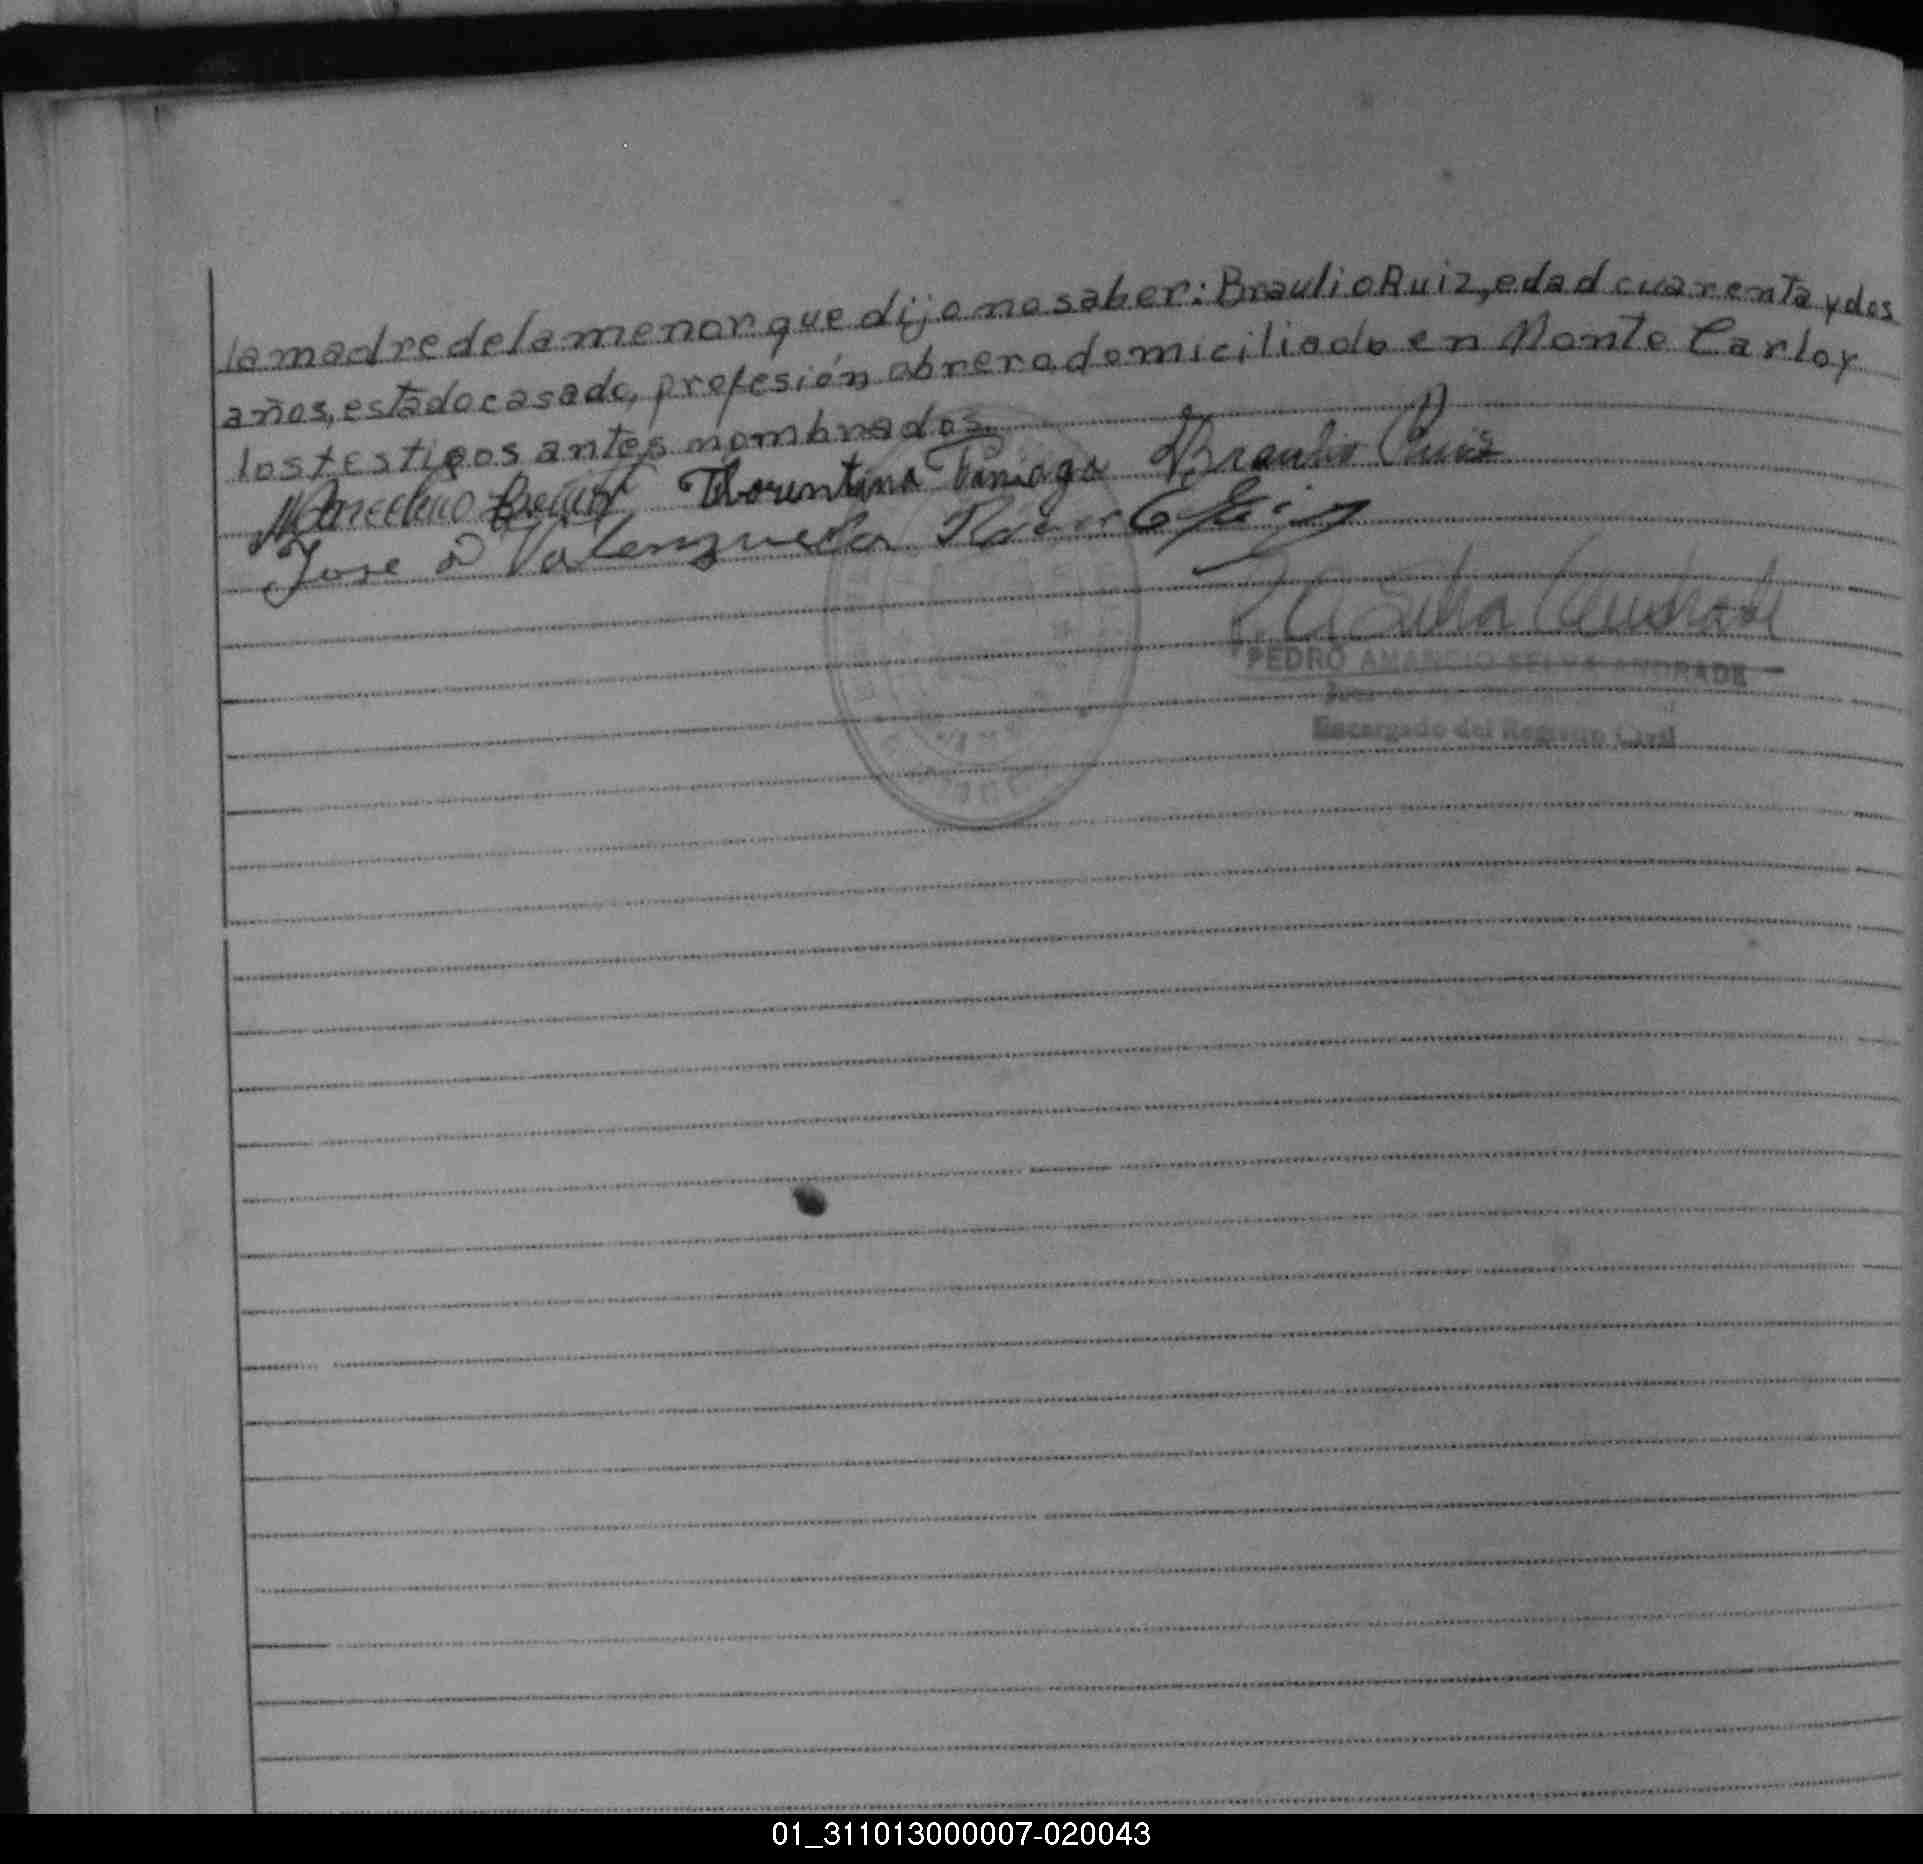 la madre de la menor que dijo no saber: Braulio Ruiz, edad cuarenta y dos
años, estado casado, profesión obrero, domiciliado en Monte Carlo y
los testigos antes nombrados.
Marcelino Florentino Paniaga Braulio Ruiz
Jose D Valenzuela
PEDRO AMANCIO SELVA ANDRADE
Encargado del Registro Civil
01_311013000007-020043